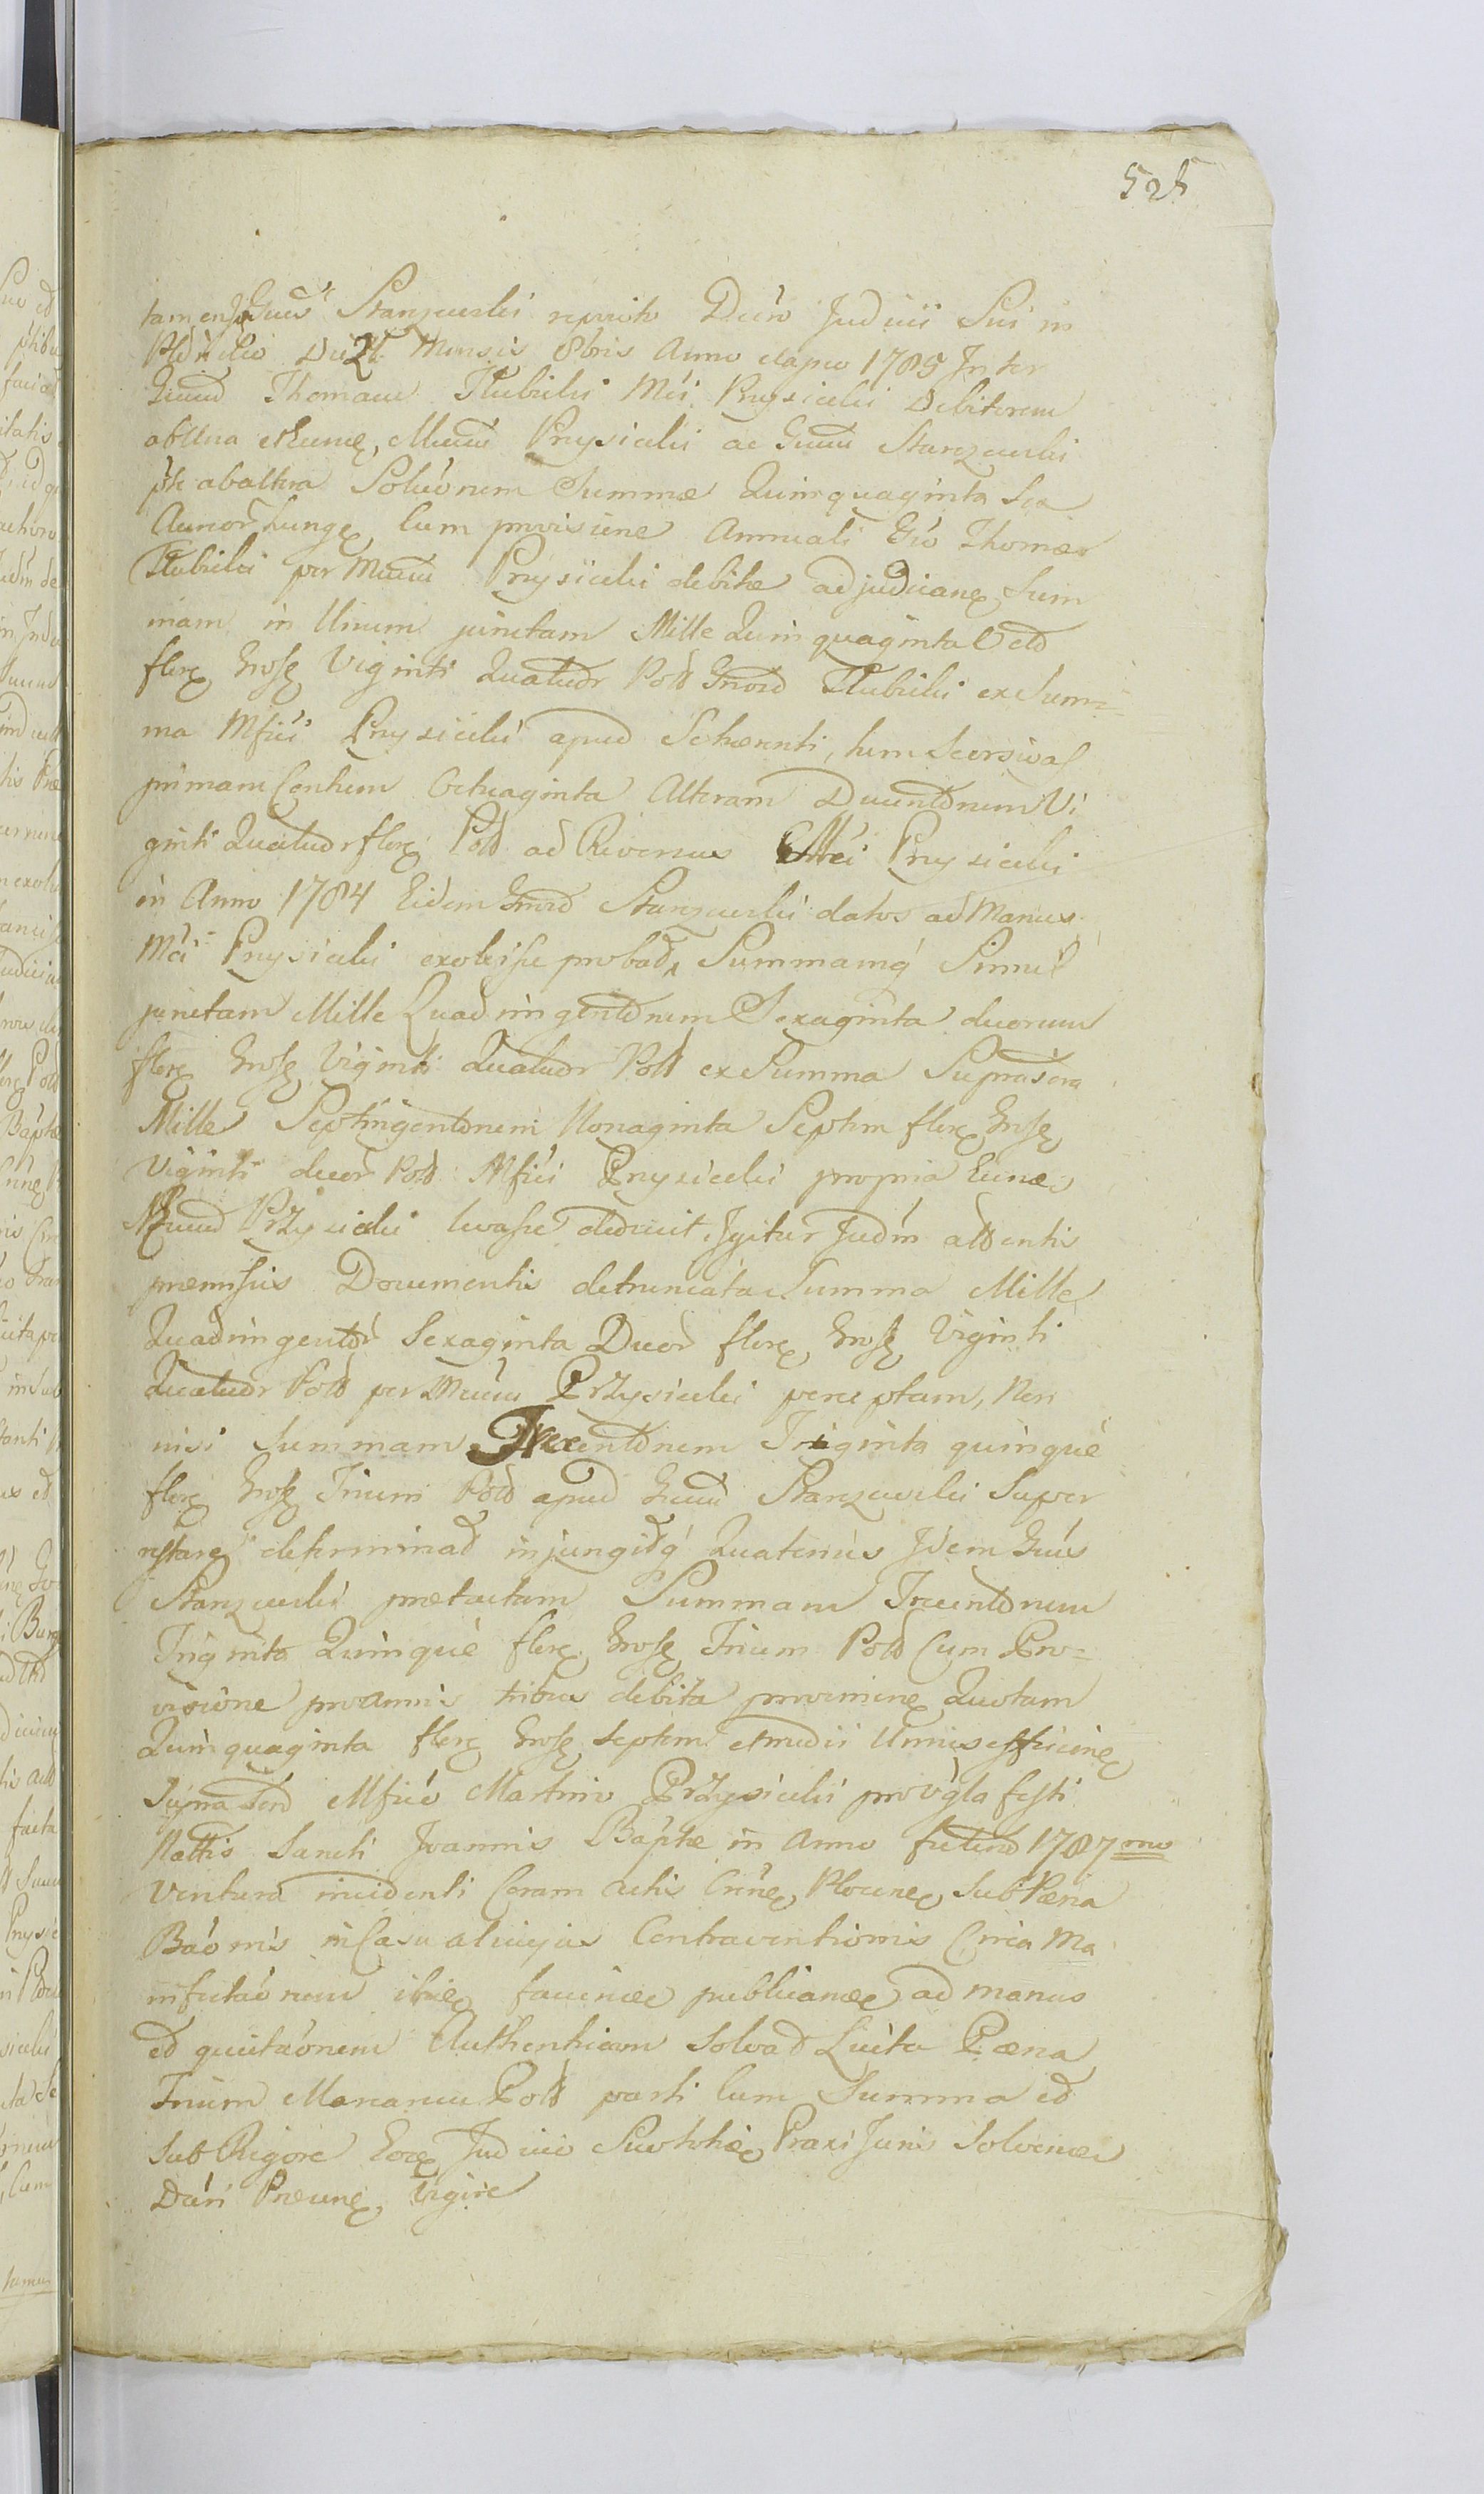 525
tamen Gnus Stanzewski reperto Dcro Judicii Sui in
Die 21 Mensis 8bris Anno elapso 1785 Inter
Gnum Thomam Tlubicki Mci Przysiecki Debitorem
ab Una et eund, Mcum Przysiecki ac Gnum Stanzewski
pte ab altera Soluonem Summæ Quinquaginta Sex
Aureor hung, Cum provisione Annuali Gso Thomæ
Tlubicki per Mcum Przysiecki debitæ adjudicane, Sum
mam in Unum junctam Mille Quinquaginta Octo
flor, gross, Viginti Quatuor Poll Gnoso Tlubicki ex Sum=
ma Mfici Przysiecki apud Se hærenti, tum Seorsivas
primam Centum Octuaginta Alteram Ducentorum Vi
ginti Quatuor flor, Poll ad Reversus Mci Przysiecki
in Anno 1784 Eidem Gnoso Stanzewski datos ad Manus
Mci Przysiecki exolvisse probat, Summamq Simul
junctam Mille Quadringentorum Sexaginta duorum
flor, gross, Viginti Quatuor Poll ex Summa Suprascra
Mille Septingentorum Nonaginta Septem flor, gross,
Viginti duor Poll Mfici Przysiecki propria
Przysiecki levasse deduxit. Igitur Judm attentis
præmissis Documentis detruncata Summa Mille
Quadringentor Sexaginta Duor flor, gross, Viginti
Quatuor Poll per Mcum Przysiecki perceptam, Non
nisi Summam Trecentorum Triginta quinque
flor, gross, Trium Poll apud Gnum Stanzewski Super
restare determinat injungitq Quatenus Idem Gnus
Stanzewski prætactam Summam Trecentorum
Triginta Quinque flor, gross, Trium Poll Cum Pro=
visione pro annis tribus debita provenine, Quotam
Quinquaginta flor, gross, Septem et medii Unius efficine,
Mfico Martino Przysiecki pro vigla festi
Nattis Sancti Joannis Bapte in Anno futuro 1787mo
Ventura incidenti Coram actis Plocne, Sub Pæna
Baonis in Casu alicujus Contraventionis Circa Ma
nifestaonem ibid, faciend, publicand, ad manus
et quietaonem Authenticam Solvat Luita Pæna
Trium Marcarum Poll parti Cum Summa et
Sub Rigore Eor, Judicio Juris Solvend,
Dcri Præsne, Vigore